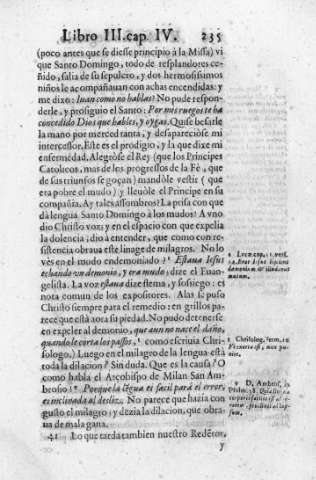 Libro III. cap. IV. 235
(poco antes que se diesse principio à la Missa) vi
que Santo Domingo, todo de resplandores ce-
ñido, salia de su sepulcro, y dos hermosissimos
niños le acompañauan con achas encendidas: y
me dixo: Iuan como no hablas? No pude respon-
derle, y prosiguio el Santo: Por mis ruegos te ha
concedido Dios que hables, y oygas. Quise besarle
la mano por merced tanta, y desapareciòse mi
intercessor. Este es el prodigio, y la que dixe mi
enfermedad. Alegròse el Rey (que los Principes
Catolicos, mas de los progressos de la Fè, que
de sus triunfos se goçan) mandòle vestir (que
era pobre el mudo) y lleuòle el Principe en su
compañia. Ay tales assombros? La prisa con que
dà lengua Santo Domingo à los mudos! A vno
dio Christo voz: y en el espacio con que expelia
la dolencia, dio à entender, que como con re-
sistencia obraua este linage de milagros. No lo
vès en el modo endemoniado? Estaua Iesus
echando vn demonio, y era mudo; dize el Euan-
gelista. La voz estaua dize flema, y sosiego: es
nota comun de los expositores. Alas se puso
Christo siempre para el remedio: en grillos pare-
ce que està aora su piedad. No pudo detenerse
en expeler al demonio, que aun no nace el daño,
quando le corta los passos, como escriuia Chri-
sologo. Luego en el milagro de la lengua està
toda la dilacion? Sin duda. Que es la causa? O
como habla el Arçobispo de Milan San Am-
brosio! Porque la lẽgua es facil para el error,
es inclinada al desliz. No parece que hazia con
gusto el milagro; y dezia la dilacion, que obra-
ua de mala gana.
41 Lo que tarda tambien nuestro Redẽtor,
y
s Luc. cap. 11. vers.
14. Erat Iesus eijciens
dæmonium & illud erat
mutum.
t Chrisolog. serm.
V D. Ambros. in